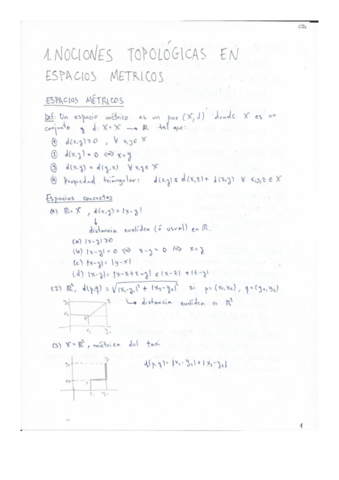 1. NOCIONES TOPOLÓGICAS EN
ESPACIOS METRICOS
ESPACIOS MÉTRICOS
Def: Un espacio métrico es un par (X,d) donde X es un
conjunto y d: X×X → R tal que:
① d(x,y) ≥ 0, ∀ x,y ∈ X
② d(x,y) = 0 ⇔ x=y
③ d(x,y) = d(y,x) ∀ x,y ∈ X
④ Propiedad triángular: d(x,y) ≤ d(x,z) + d(z,y) ∀ x,y,z ∈ X
Espacios concretos
(1) R = X, d(x,y) = |x-y|
distancia euclídea (ó usual) en R.
(a) |x-y| ≥ 0
(b) |x-y| = 0 ⇔ x-y = 0 ⇔ x=y
(c) |x-y| = |y-x|
(d) |x-y| = |x-z+z-y| ≤ |x-z| + |z-y|
(2) R², d(p,q) = √(|x₁-y₁|² + |x₂-y₂|²) si p=(x₁,x₂), q=(y₁,y₂)
distancia euclídea en R²
(3) X = R², métrica del taxi
d(p,q) = |x₁-y₁| + |x₂-y₂|
1